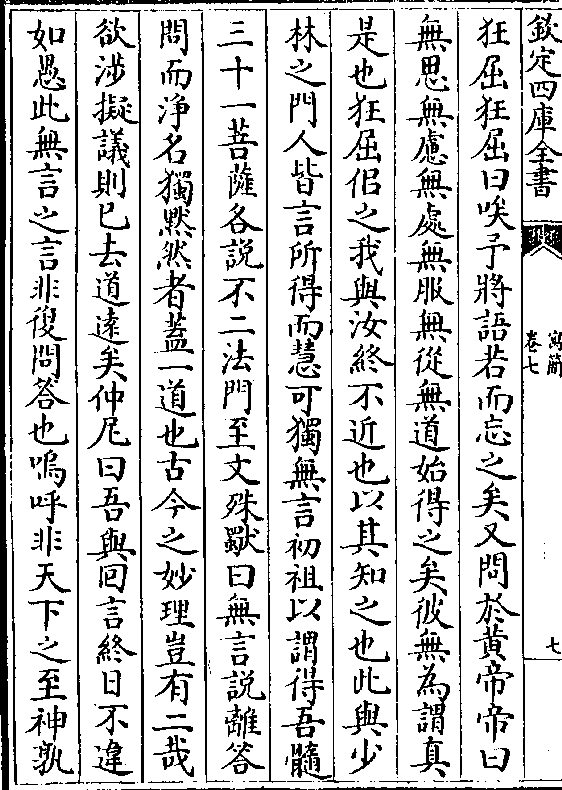 欽定四庫全書
寓簡
卷七
七
狂屈狂屈曰唉予將語若而忘之矣又問於黄帝帝曰
無思無慮無處無服無從無道始得之矣彼無為謂真
是也狂屈佀之我與汝終不近也以其知之也此與少
林之門人皆言所得而慧可獨無言初祖以謂得吾髓
三十一菩薩各說不二法門至文殊獸曰無言說離答
問而浄名獨黙然者蓋一道也古今之妙理豈有二哉
欲涉擬議則已去道逺矣仲尼曰吾與回言終日不違
如愚此無言之言非復問答也嗚呼非天下之至神孰